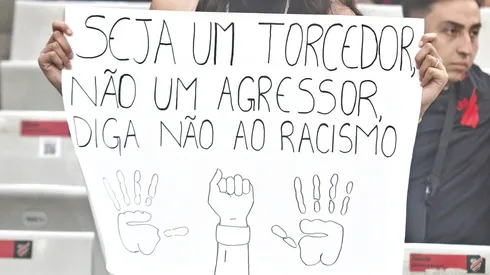 SEJA UM TORCEDOR,
NÃO UM AGRESSOR,
DIGA NÃO AO RACISMO